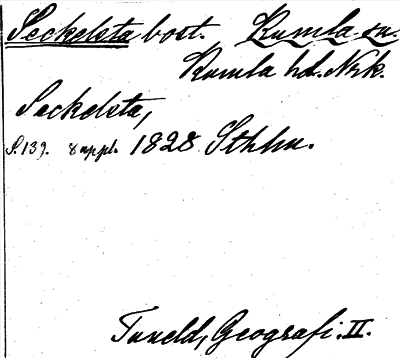 Seckelsta bost. Kumla sn.
Kumla hd. Nrk.
Seckelsta,
S. 139. 8 uppl. 1828 Sthlm.
Tuneld, Geografi. II.